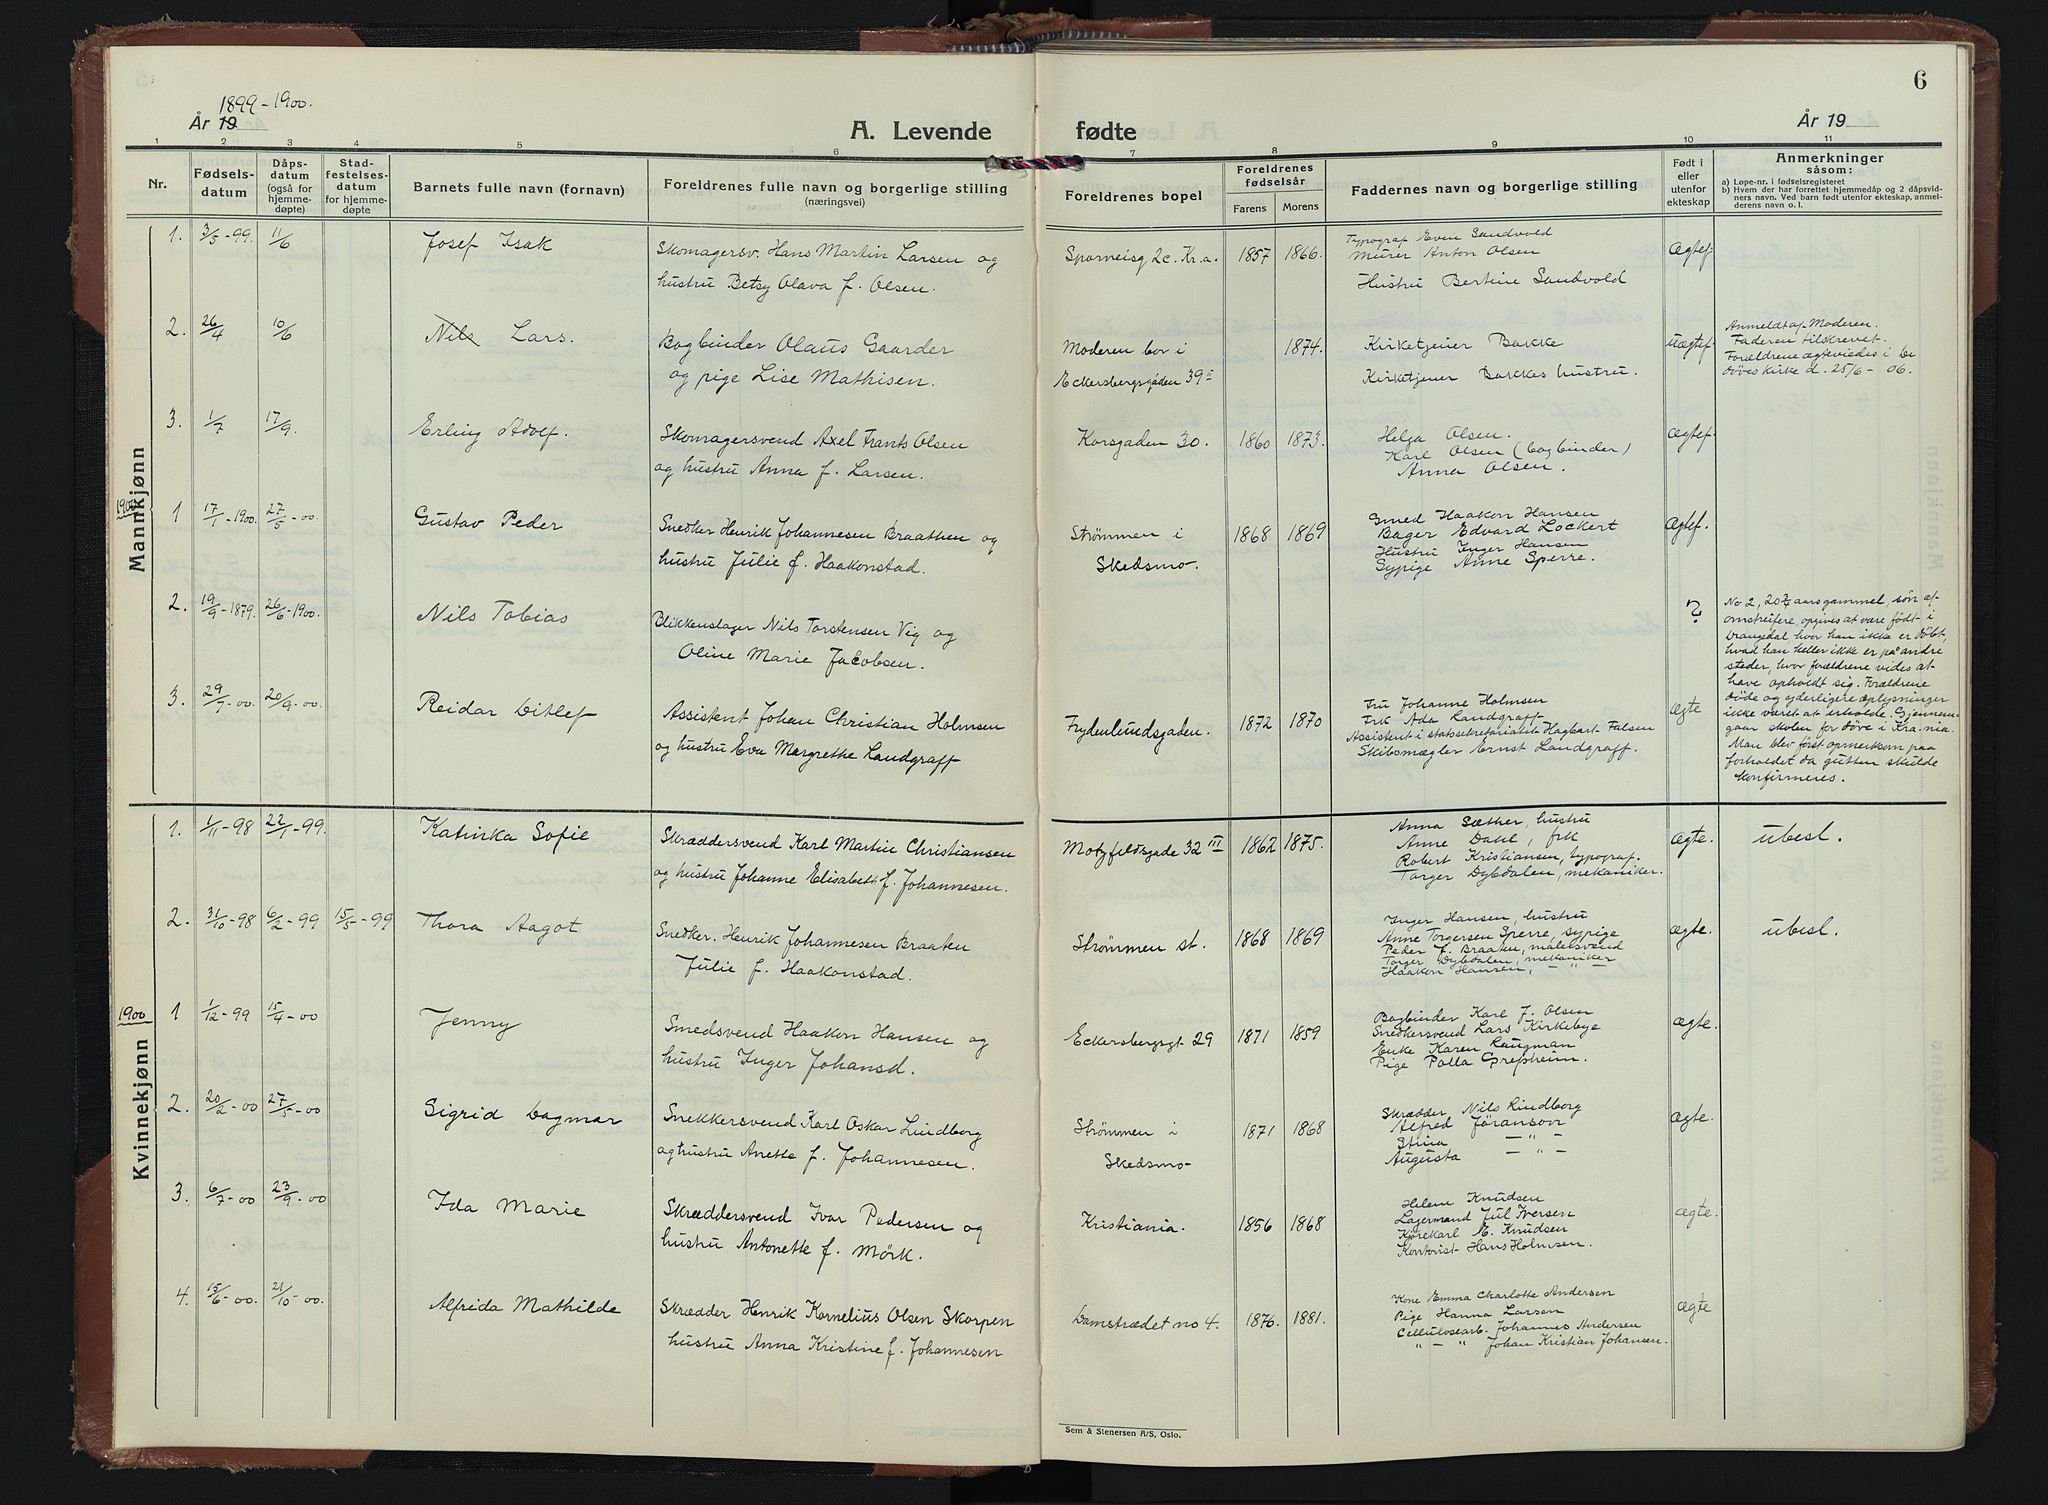 6
1899-1900.
År 19
A. Levende fødte
År 19
1 2 3 4 5 6 7 8 9 10 11
Nr.
Fødsels-
datum
Dåps-
datum
(også for
hjemme-
døpte)
Stad-
festelses-
datum
for hjemme-
døpte
Barnets fulle navn (fornavn)
Foreldrenes fulle navn og borgerlige stilling
(næringsvei)
Foreldrenes bopel
Foreldrenes
fødselsår
Farens Morens
Faddernes navn og borgerlige stilling
Født i
eller
utenfor
ekteskap
Anmerkninger
såsom:
a) Løpe-nr. i fødselsregisteret
b) Hvem der har forrettet hjemmedåp og 2 dåpsvid-
ners navn. Ved barn født utenfor ekteskap, anmel-
derens navn o. l.
Mannkjønn
1. 3/5-99. 11/6
Josef Isak
Skomagersv. Hans Martin Larsen og
hustru Betsy Olava f. Olsen.
Sporveisg 2c. Kr.a.
1857 1866.
Typograf Even Sandvold
Murer Anton Olsen
Hustru Bertine Sandvold
Ægtef.
2. 26/4 10/6
Nils Lars.
Bogbinder Olaus Gaarder
og pige Lise Mathisen.
Moderen bor i
Eckersbergsgaden 39 II
1874.
Kirketjener Bakke
Kirketjener Bakkes hustru.
uægtef.
Anmeldt af Moderen.
Faderen tilskrevet.
Forældrene ægteviedes i De
døves kirke d. 25/6-06.
3. 1/7 17/9.
Erling Adolf.
Skomagersvend Axel Frants Olsen
og hustru Anna f. Larsen.
Korsgaden 30.
1860 1873.
Helga Olsen.
Karl Olsen (bogbinder)
Anna Olsen.
Ægtef.
1900
1 17/1-1900. 27/5-00.
Gustav Peder
Snedker Henrik Johannesen Braathen og
hustru Julie f. Haakonstad.
Strømmen i
Skedsmo.
1868 1869
Smed Haakon Hansen
Bager Edvard Lockert
Hustru Inger Hansen
Sypige Anne Sperre.
Ægtef.
2. 19/9-1879. 26/6-1900.
Nils Tobias
Blikkenslager Nils Torstensen Vig og
Oline Marie Jacobsen.
?
No 2, 20 3/4 aars gammel, søn af
omstreifere, opgives at være født i
Drangedal hvor han ikke er døbt,
hvad han heller ikke er på andre
steder, hvor forældrene vides at
have opholdt sig. Forældrene
døde og yderligere oplysninger
ikke været at erholde. Gjennem-
gaar skolen for døve i Kr.a nia.
Man blev først opmerksom paa
forholdet da gutten skulde
konfirmeres.
3. 29/7-00. 20/9-00.
Reidar Ditlef
Assistent Johan Christian Holmsen
og hustru Eva Margrethe Landgraff
Frydenlundsgaden.
1872 1870
Fru Johanne Holmsen
Frk Ada Landgraff
Assistent i statssekretariatet Hagbart Falsen
Skibsmægler Ernst Landgraff.
Ægte
Kvinnekjønn
1. 1/11-98 22/1-99.
Katinka Sofie
Skræddersvend Karl Martin Christiansen
og hustru Johanne Elisabeth f. Johannesen.
Motzfeldsgade 32 III
1862 1875.
Anna Sæther, hustru
Anne Dahl, frk
Robert Kristiansen, typograf.
Torger Dybdalen, mekaniker.
Ægte.
ubesl.
2. 31/10-98 6/2-99 15/5-99
Thora Aagot
Snedker. Henrik Johannesen Braaten
Julie f. Haakonstad.
Strømmen st.
1868 1869
Inger Hansen, hustru
Anne Torgersen Sperre, sypige
Peder J. Braaten, malersvend
Torger Dybdalen, mekaniker
Haakon Hansen, - " -
Ægte.
ubesl.
1900
1 1/12-99 15/4-00
Jenny
Smedsvend Haakon Hansen og
hustru Inger Johansd.
Eckersbergsgt 29
1871 1859
Bogbinder Karl J. Olsen
Snedkersvend Lars Kirkebye
Enke Karen Raugman
Pige Palla Grepheim.
Ægte.
2. 20/2-00 27/5-00
Sigrid Dagmar
Snekkersvend Karl Oskar Lindborg
og hustru Anette f. Johannesen.
Strømmen i
Skedsmo-
1871 1868
Skrædder Nils Lindborg
Alfred Jøranson
Stina - " -
Augusta - " -
Ægte.
3. 6/7-00 23/9-00
Ida Marie
Skræddersvend Ivar Pedersen og
hustru Antonette f. Mörk.
Kristiania.
1856 1868
Helene Knudsen
Lagermand Jul Iversen
Kjørekarl E. Knudsen
Kontorist Hans Holmsen.
Ægte.
4. 15/6-00. 21/10-00.
Alfrida Mathilde
Skrædder Henrik Kornelius Olsen Skorpen
hustru Anna Kristine f. Johannesen
Damstrædet no 4.
1876. 1881.
Kone Emma Charlotte Andersen
Pige Hanna Larsen
Cellulosearb. Johannes Andersen
" - " Johan Kristian Johansen.
Ægte
Sem & Stenersen A/S, Oslo.